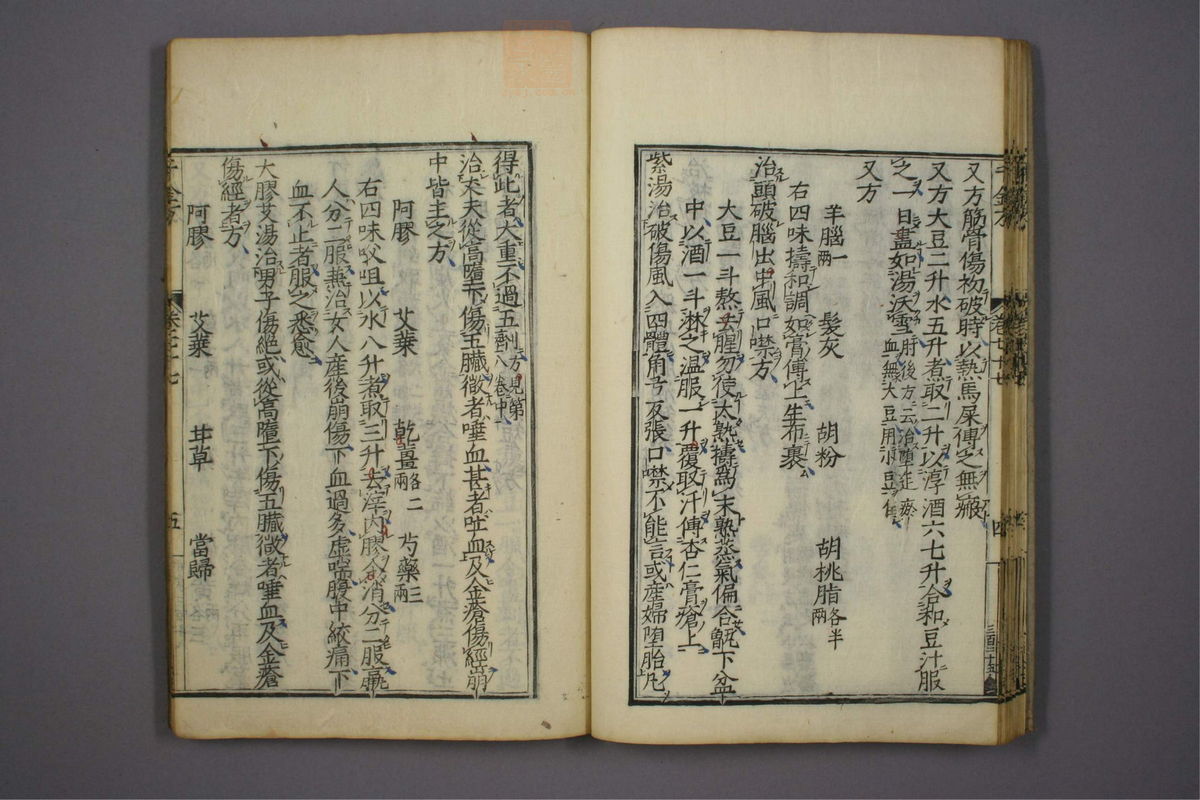 又方筋骨傷初破時以熱馬屎傅之無瘢
又方大豆二升水五升煮取二升以淳酒六七升合和豆汁服
之一日盡如湯沃雪肘後方云治墮迮瘀血無大豆用小豆佳
又方
羊腦一兩 髮灰 胡粉 胡桃脂各半兩
右四味擣和調如膏傅上生布裹
治頭破腦出中風口噤方
大豆一斗熬去腥勿使太熟擣爲末熟蒸氣偏合甑下盆
中以酒一斗淋之温服一升覆取汗傅杏仁膏瘡上
紫湯治破傷風入四體角弓反張口噤不能言或産婦墮胎凡
四
得此者大重不過五劑方見第八卷中
治丈夫從高墮下傷五臟微者唾血甚者吐血及金瘡傷經崩
中皆主之方
阿膠 艾葉 乾薑各二兩 芍藥三兩
右四味㕮咀以水八升煮取三升去滓内膠令消分二服羸
人分三服兼治女人産後崩傷下血過多虚喘腹中絞痛下
血不止者服之悉愈
大膠艾湯治男子傷絶或從高墮下傷五臟微者唾血及金瘡
傷經者方
阿膠 艾葉 甘草 當歸
千金方 五